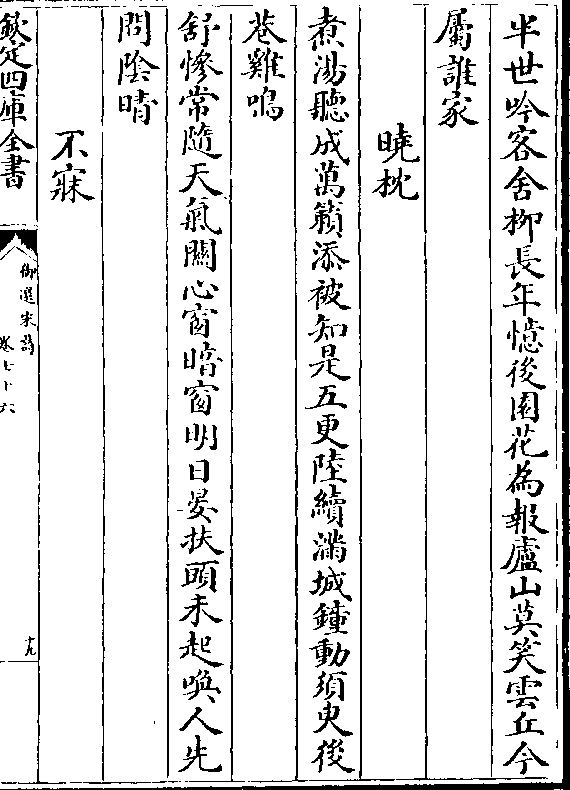 半世吟客舍柳長年憶後園花為報廬山莫笑雲丘今
屬誰家
曉枕
煮湯聽成萬籟添被知是五更陸續滿城鐘動須臾後
巷雞鳴
舒慘常隨天氣關心窗暗窗明日晏扶頭未起喚人先
問陰晴
不寐
欽定四庫全書
御選宋詩
卷七十六
十九